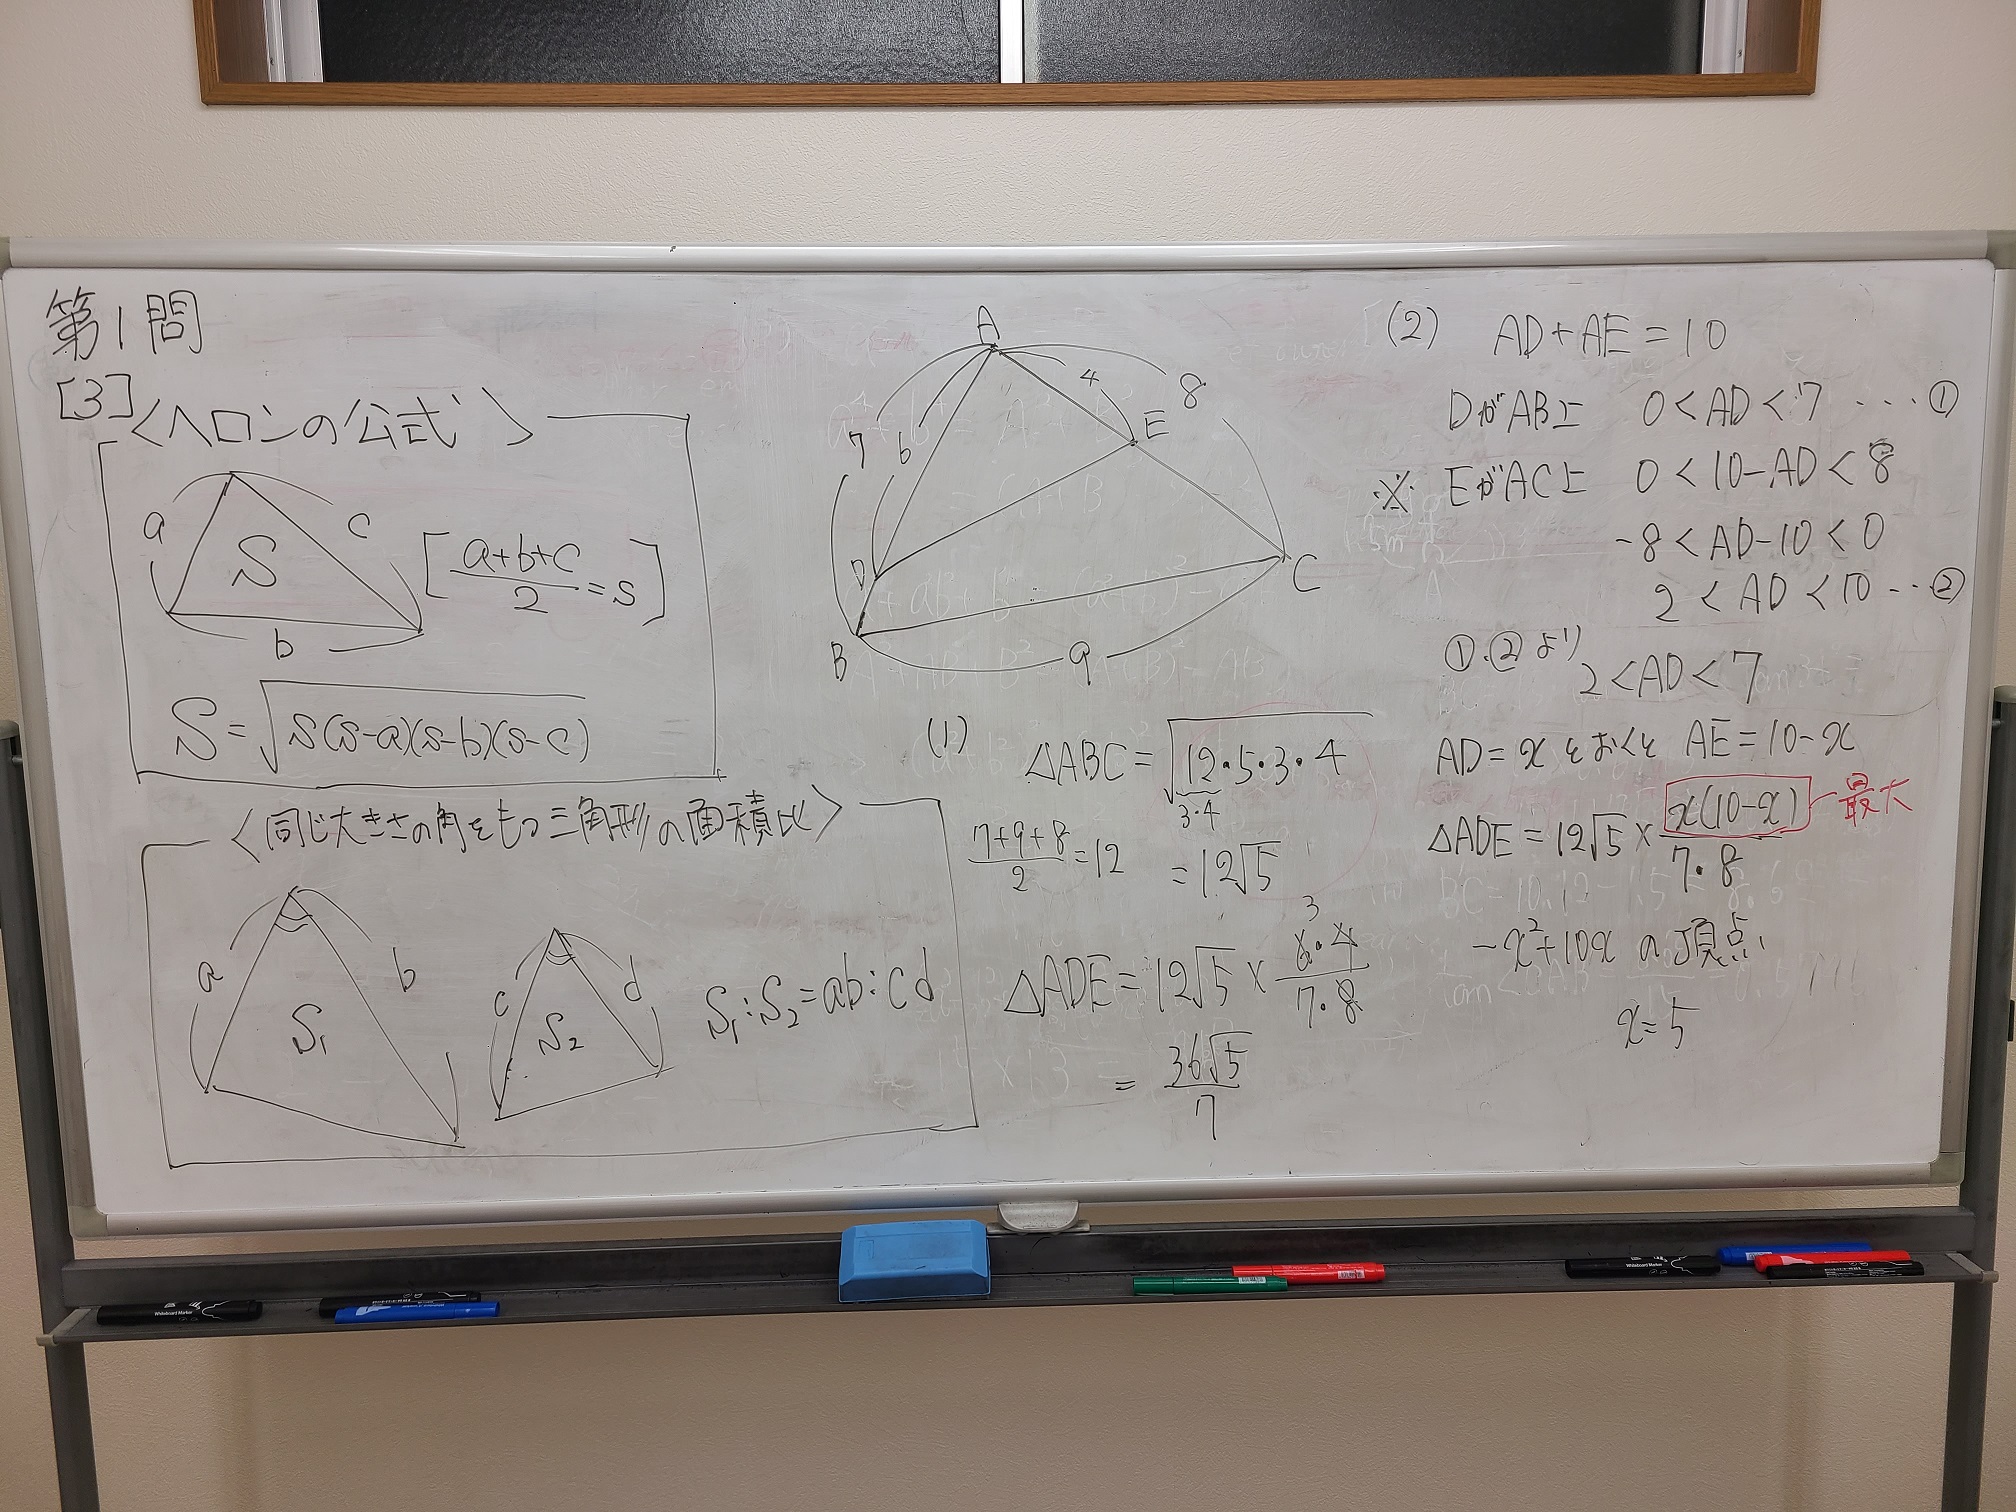 第1問
[3]
〈ヘロンの公式〉
a
c
S
b
[a+b+c/2=s]
S=√s(s-a)(s-b)(s-c)
〈同じ大きさの角をもつ三角形の面積比〉
a
b
S₁
c
d
S₂
S₁:S₂=ab:cd
A
4
8
E
7
6
D
C
B
9
(1)
△ABC=√12・5・3・4
3・4
7+9+8/2=12
=12√5
3
△ADE=12√5×6・4/7・8
=36√5/7
(2) AD+AE=10
DがAB上 0<AD<7 ・・・①
※ EがAC上 0<10-AD<8
-8<AD-10<0
2<AD<10 ・・②
①、②より
2<AD<7
AD=xとおくと AE=10-x
△ADE=12√5×x(10-x)/7・8
最大
-x²+10x の頂点
x=5
Whiteboard Marker
Whiteboard Marker